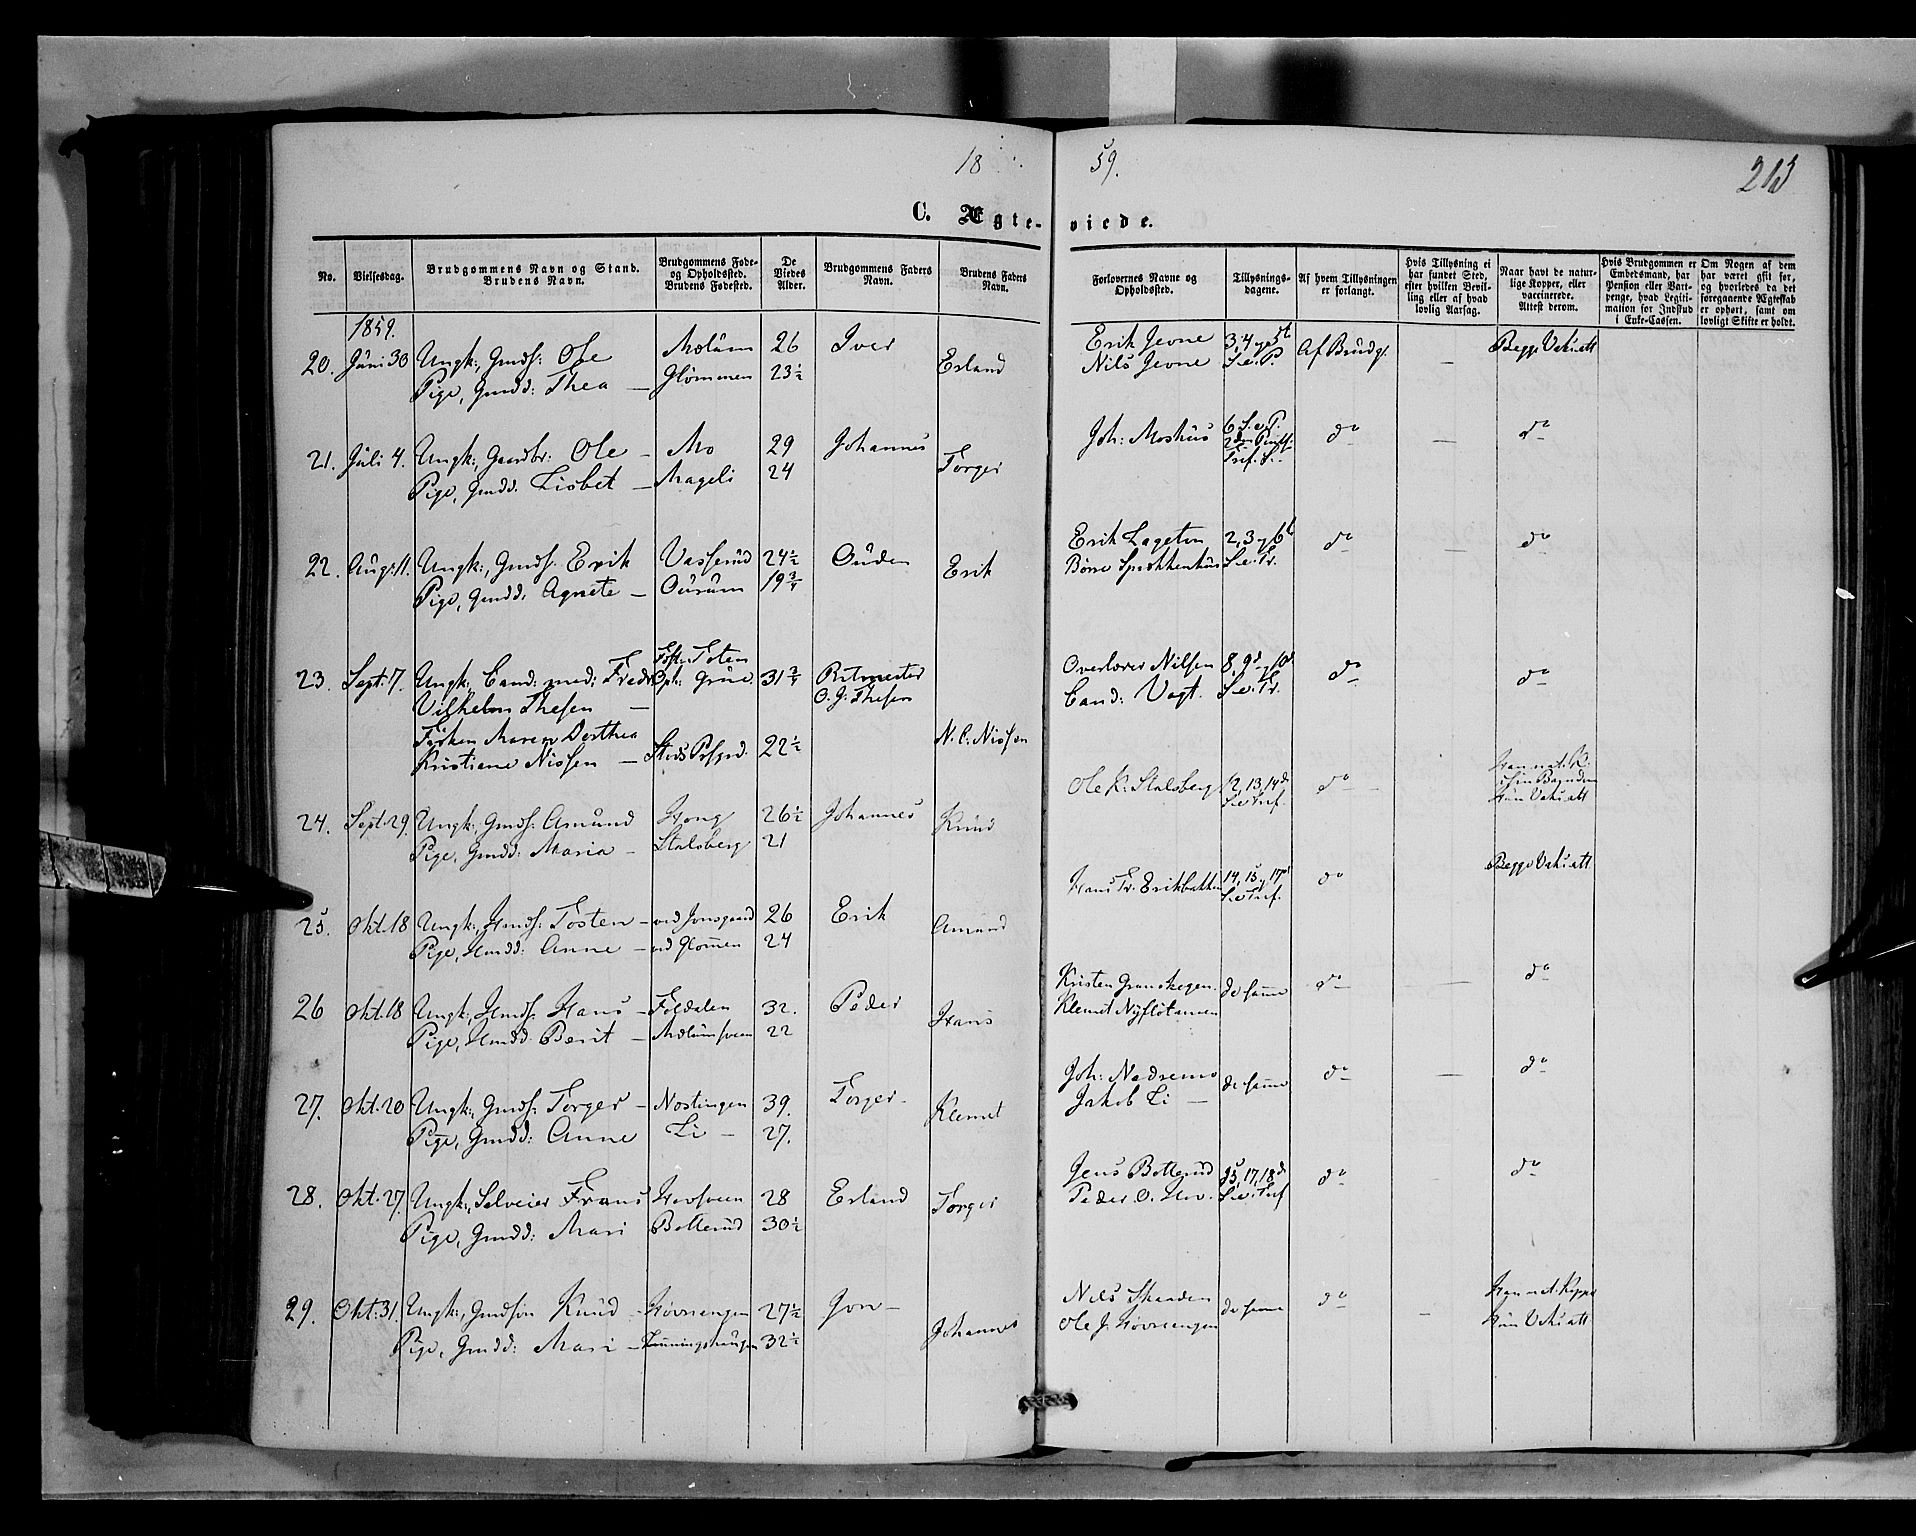 18 59.
213
C. Ægte- viede.
No. | Vielsesdag. | Brudgommens Navn og Stand. Brudens Navn. | Brudgommens Føde- og Opholdssted. Brudens Fødested. | De Viedes Alder. | Brudgommens Faders Navn. | Brudens Faders Navn. | Forlovernes Navne og Opholdssted. | Tillysnings-dagene. | Af hvem Tillysningen er forlangt. | Hvis Tillysning ei har fundet Sted, efter hvilken Bevilling eller af hvad lovlig Aarsag. | Naar havt de naturlige Kopper, eller vaccinerede. Attest derom. | Hvis Brudgommen er Embedsmand, har Pension eller Vartpenge, hvad Legitimation for Indskud i Enke-Cassen. | Om Nogen af dem har været gift før, og hvorledes da det foregaaende Ægteskab er ophørt, samt om lovligt Skifte er holdt.
1859.
20. Juni 30 Ungk:, Gmds: Ole Mælum 26 Iver Erik Jevne 3,4 og 5te Af Brudg. — Begge Vaks: att
Pige, Gmdd: Thea — Glommen 23½ Erland Nils Jevne S. e. P.
21. Juli 4. Ungk:, Gaardbr: Ole — Mo 29 Johannes Joh: Moshus 6 S. e. P. do — do
Pige, Gmdd: Lisbet — Mageli 24 Torger 2den Pintsd. Tref. S.
22. Aug: 11. Ungk:, Gmds: Erik Vasserud 24½ Ouden Erik Lageton 2,3 og 6te do — do
Pige, Gmdd: Agnete — Ourum 19¾ Erik Børre S. e. Tr.
23. Sept: 7. Ungk: Cand: med: Fredr: Føst: Toten Oph: Grue 31¾ Ritmester Overlærer Nilsen 8, 9de og 10de do do
Vilhelm Thesen — O. J. Thesen Cand: Vogt. S. e. Tr.
Frøken Maren Dorthea
Kristiane Nissen — Stods Præstgrd. 22½ N. C. Nissen
24. Sept: 29. Ungk:, Gmds: Amund Hong 26½ Johannes Ole K. Stalsberg 12, 13, 14de do — Han nat. K. i sin Barndom
Pige, Gmdd: Maria — Stalsberg 21 Knud S. e. Tref. Hun Vaks: att
25. Okt. 18 Ungk:, Hmds: Tosten — ved Jonsgaard 26 Erik Hans Tr. Erikbakken 14, 15, 17de do Begge Vaks: att
Pige, Hmdd: Anne — ved Glommen 24 Amund S. e. Tref.
26 Okt. 18 Ungk:, Hmds: Hans — Foldalen 32. Peder Kristen Granskogen de samme do — do
Pige, Hmdd: Berit — Mælumsveen 22 Hans Klemet Nyfløtamoen
27. Okt. 20 Ungk:, Gmds: Torger — Nostingen 39. Torger — Joh: Nedremo de samme do — do
Pige, Gmdd: Anne Li — 27. Klemet Jakob Li —
28. Okt. 27. Ungk:, Selveier Frans Hovsveen 28 Erland Jens Botterud 15, 17, 18de do do
Pige, Gmdd: Mari Botterud 30½ Torger Peder O. Hov. S. e. Tref
29. Okt: 31. Ungk:, Gmdsøn Knud — Hovreengen 27½ Jon — Nils Skanden de samme do — Han nat. Kopper
Pige, Gmdd: Mari — Lunningshaugen 32½ Johannes Ole J. Hovreengen Hun Vaks: att